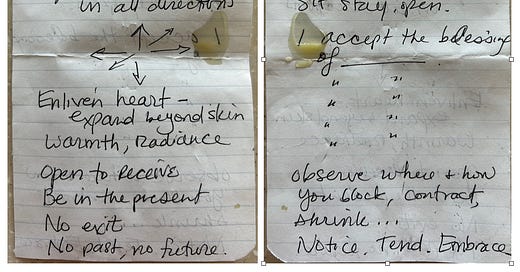 in all directions
Enliven heart –
expand beyond skin
Warmth, radiance
Open to receive
Be in the present
No exit
No past, no future.
Sit, stay, open.
I accept the blessing
of ________.
" "
" "
" "
observe where & how
You block, contract,
shrink...
Notice. Tend. Embrace